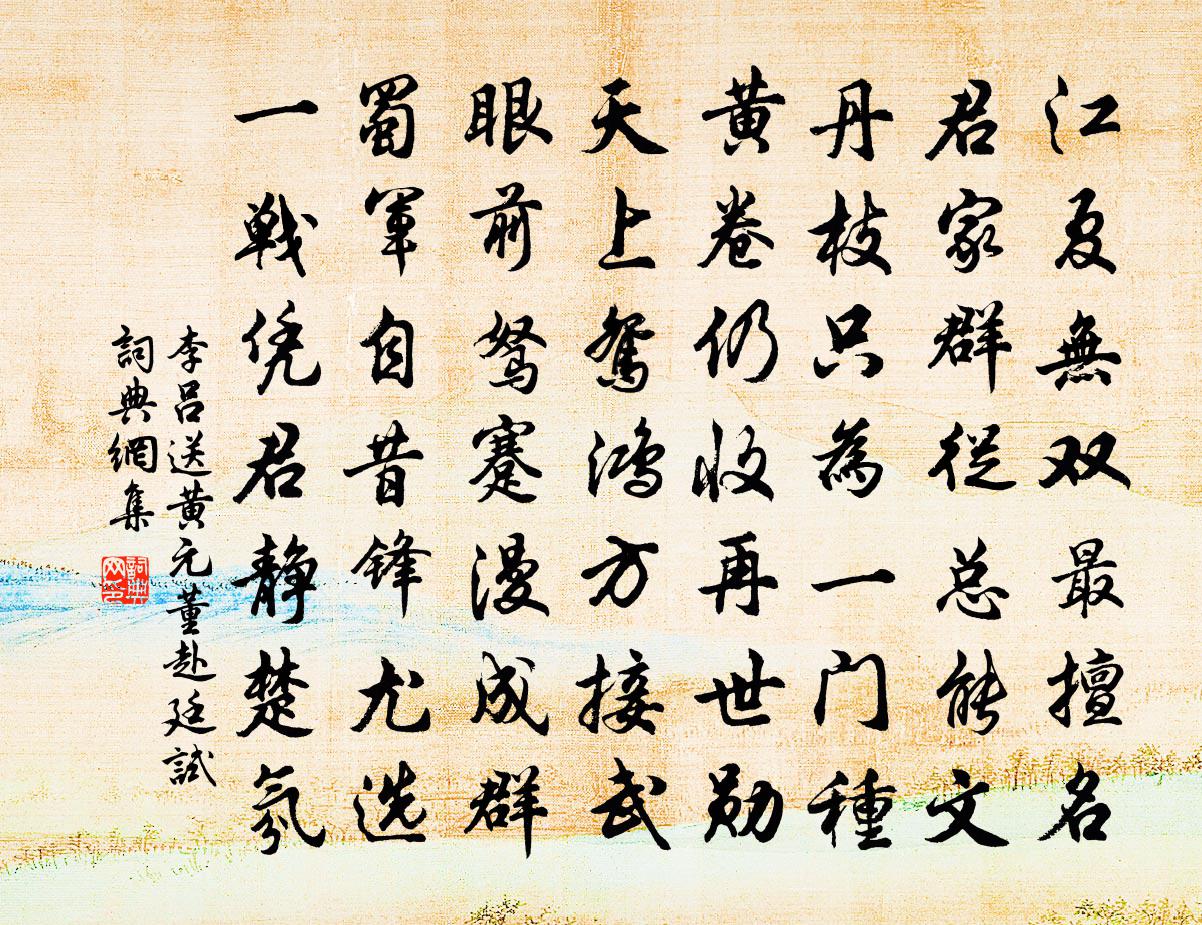 江夏無双最擅名
君家群從总能文
丹枝只為一门種
黄卷仍收再世勋
天上鸳鸿方接武
眼前驽蹇漫成群
蜀軍自昔锋尤选
一戦凭君静楚氛
李呂送黄元董赴廷試
詞典網集